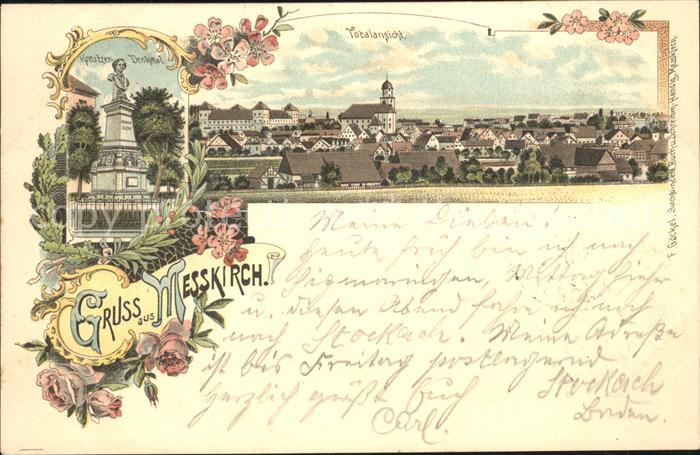 Totalansicht.
Kreutzer-Denkmal.
GRUSS aus MESSKIRCH.
Meine Lieben!
Heute früh bin ich nach
Sigmaringen, Mittag hieher
u. diesen Abend fahre ich noch
nach Stockach. Meine Adreße
ist bis Freitag postlagernd
Stockach
Baden.
herzlich grüßt Euch
Carl.